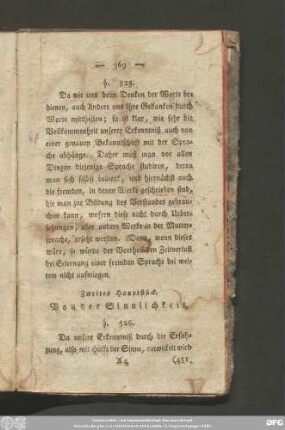 — 369 —
§. 525.
Da wir uns beim Denken der Worte be
dienen, auch Andere uns ihre Gedanken durch
Worte mittheilen; so ist klar, wie sehr die
Vollkommenheit unserer Erkenntniß auch von
einer genauen Bekanntschaft mit der Spra-
che abhänge. Daher muß man vor allen
Dingen diejenige Sprache studiren, deren
man sich selbst bedient, und hiernächst auch
die fremden, in denen Werke geschrieben sind,
die man zur Bildung des Verstandes gebrau-
chen kann, wofern diese nicht durch Ueber-
setzungen, oder andere Werke in der Mutter-
sprache, ersetzt werden. (Denn, wenn dieses
wäre, so würde der Vortheil den Zeitverlust
bei Erlernung einer fremden Sprache bei wei-
tem nicht aufwiegen.
Zweites Hauptstück.
Von der Sinnlichkeit.
§. 526.
Da unsere Erkenntniß durch die Erfah-
rung, also mit Hülfe der Sinne, entwickelt wird
Aa (451.